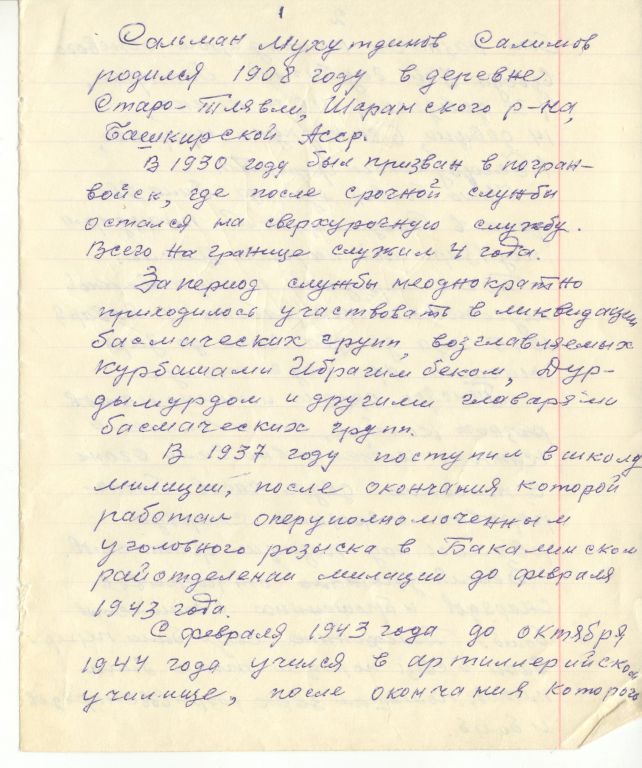 1
Сальман Мухутдинов Салимов
родился 1908 году в деревне
Старо-Тлявли, Шаранского р-на,
Башкирской Асср.
В 1930 году был призван в погран-
войск, где после срочной службы
остался на сверхурочную службу.
Всего на границе служил 4 года.
За период службы неоднократно
приходилось участвовать в ликвидации
басмаческих групп, возглавляемых
курбашами Ибрагим беком, Дур-
дымурдом и другими главарями
басмаческих групп.
В 1937 году поступил в школу
милиции, после окончания которой
работал оперуполномоченным
уголовного розыска в Бакалинском
райотделении милиции до февраля
1943 года.
С февраля 1943 года до октября
1944 года учился в артиллерийском
училище, после окончания которого